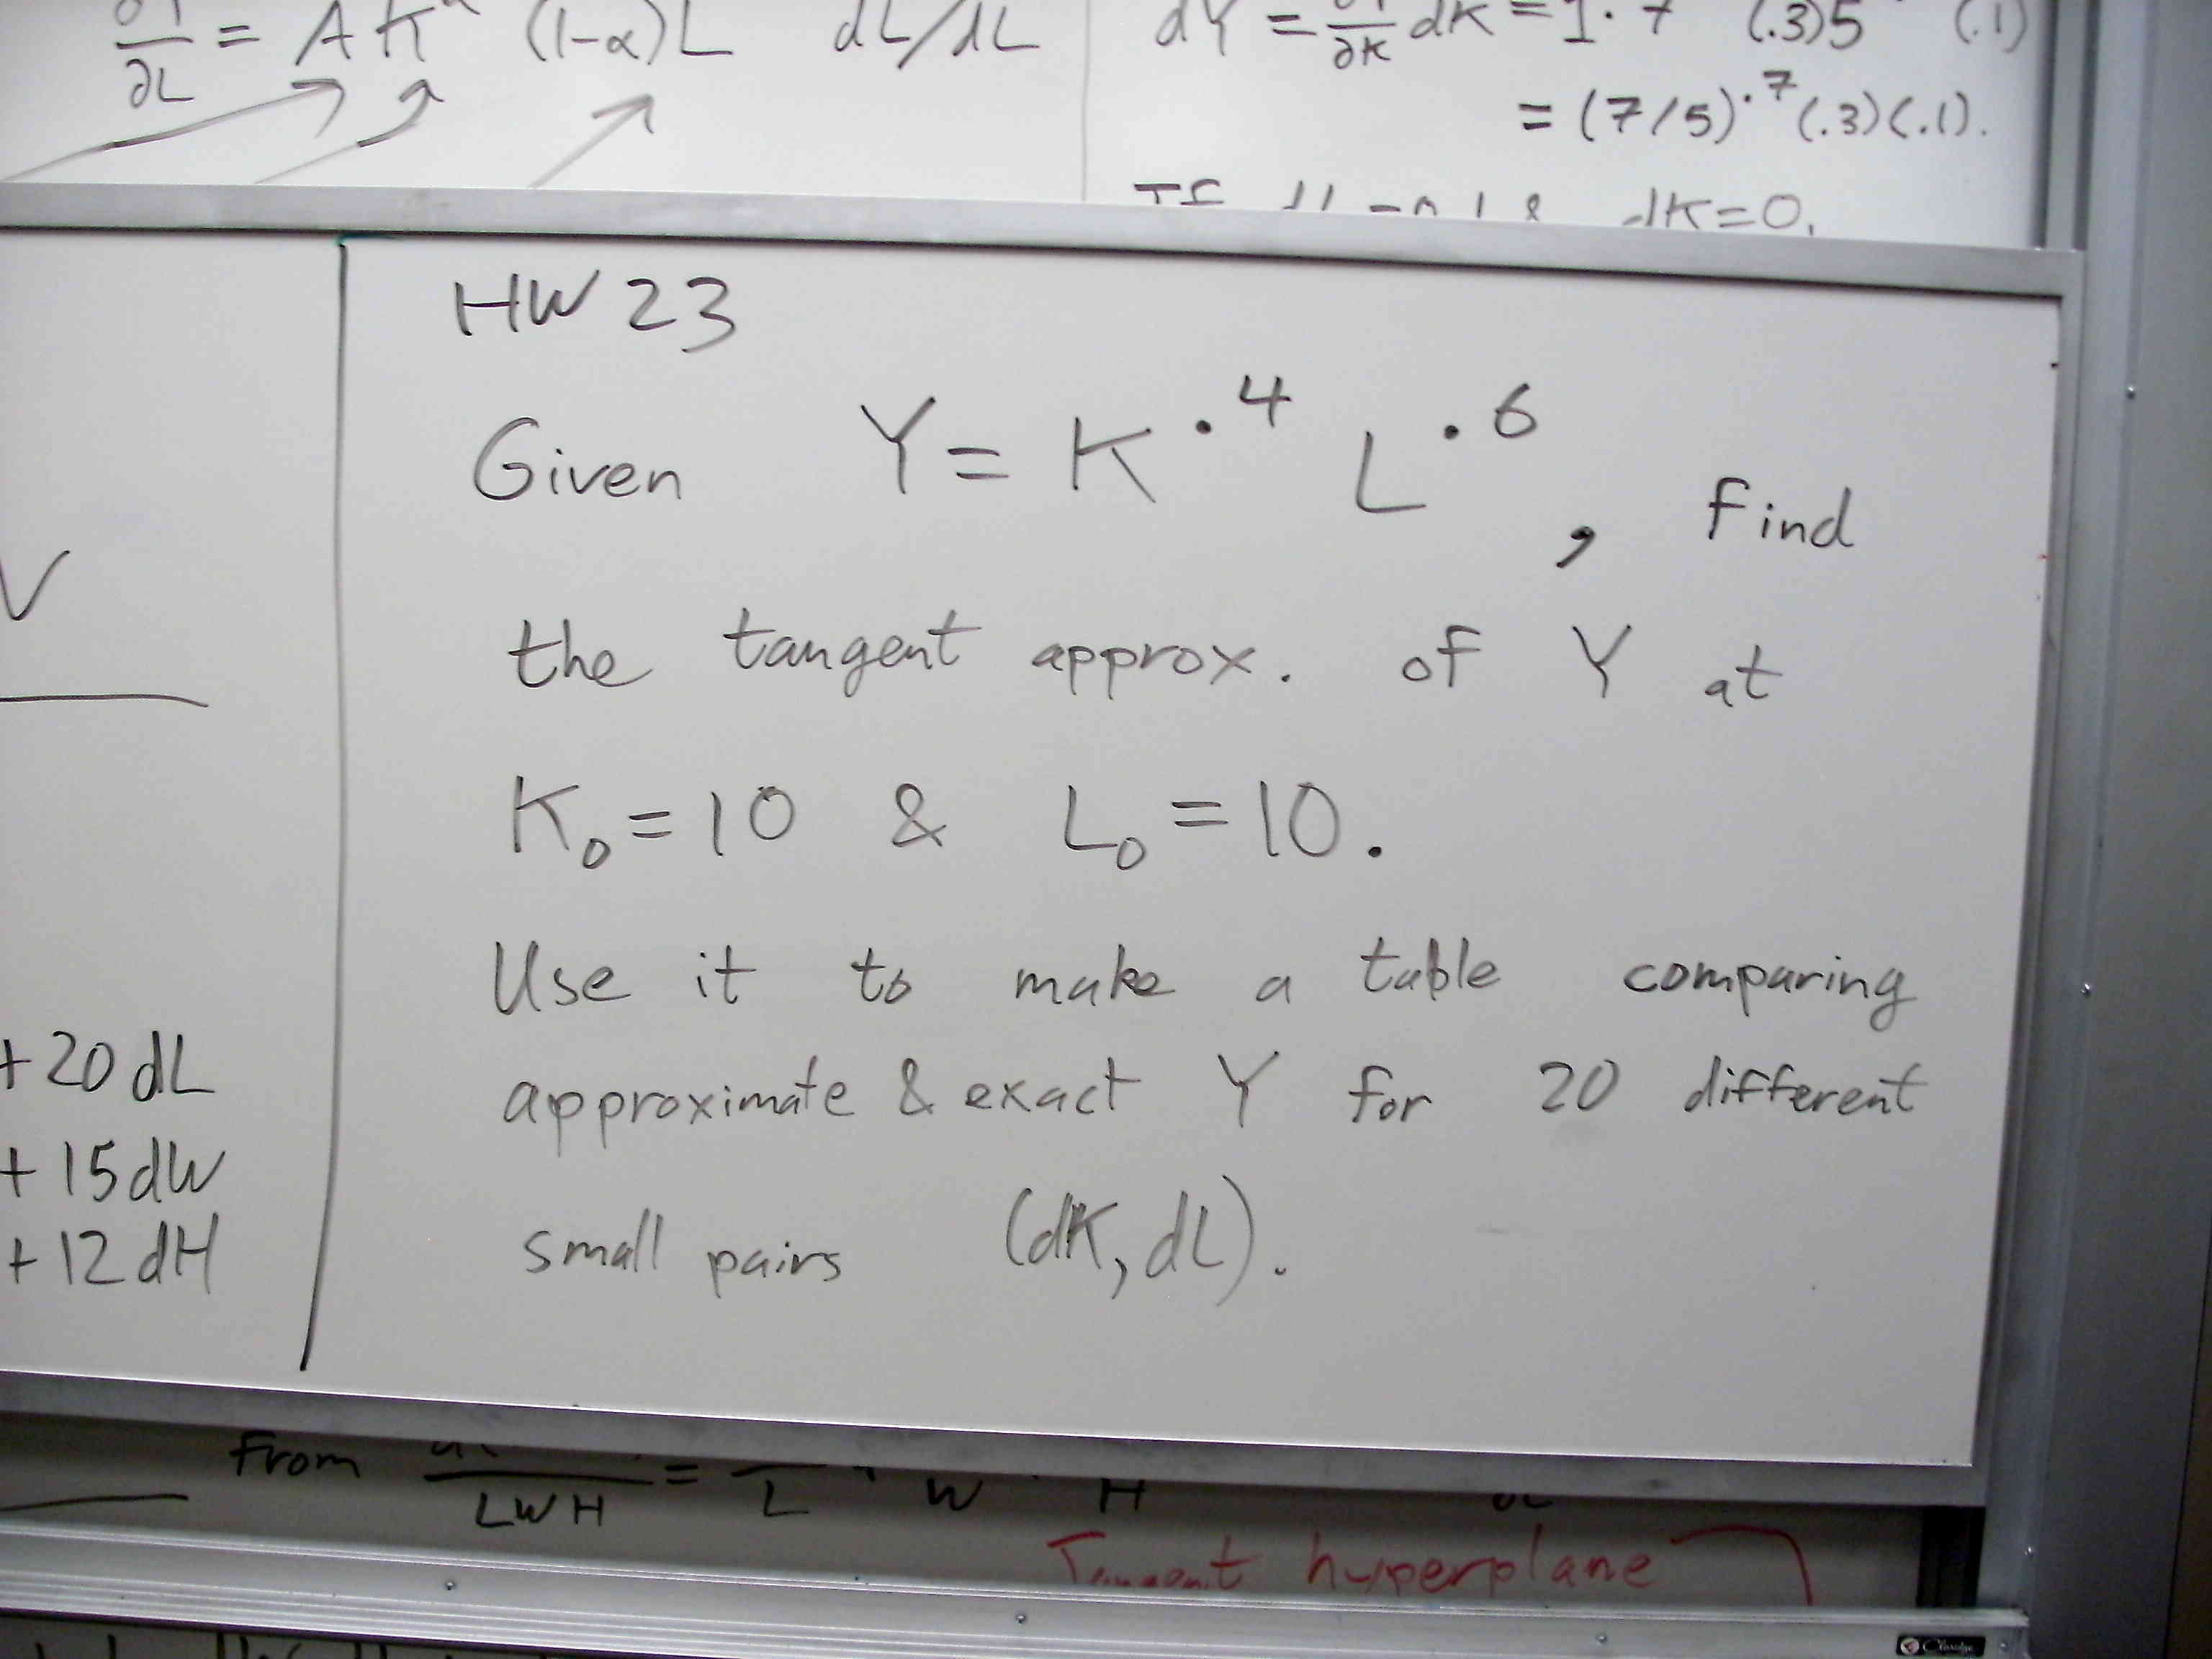 = AK (1-α)L dL/dL
∂L
dY = ∂K dK = 1·7 (.3)5 (.1)
= (7/5)^.7 (.3)(.1).
dK=0.
HW 23
Given Y = K^.4 L^.6, find
the tangent approx. of Y at
K₀ = 10 & L₀ = 10.
Use it to make a table comparing
approximate & exact Y for 20 different
small pairs (dK, dL).
V
+ 20 dL
+ 15 dW
+ 12 dH
From
LWH = L W H
Tangent hyperplane